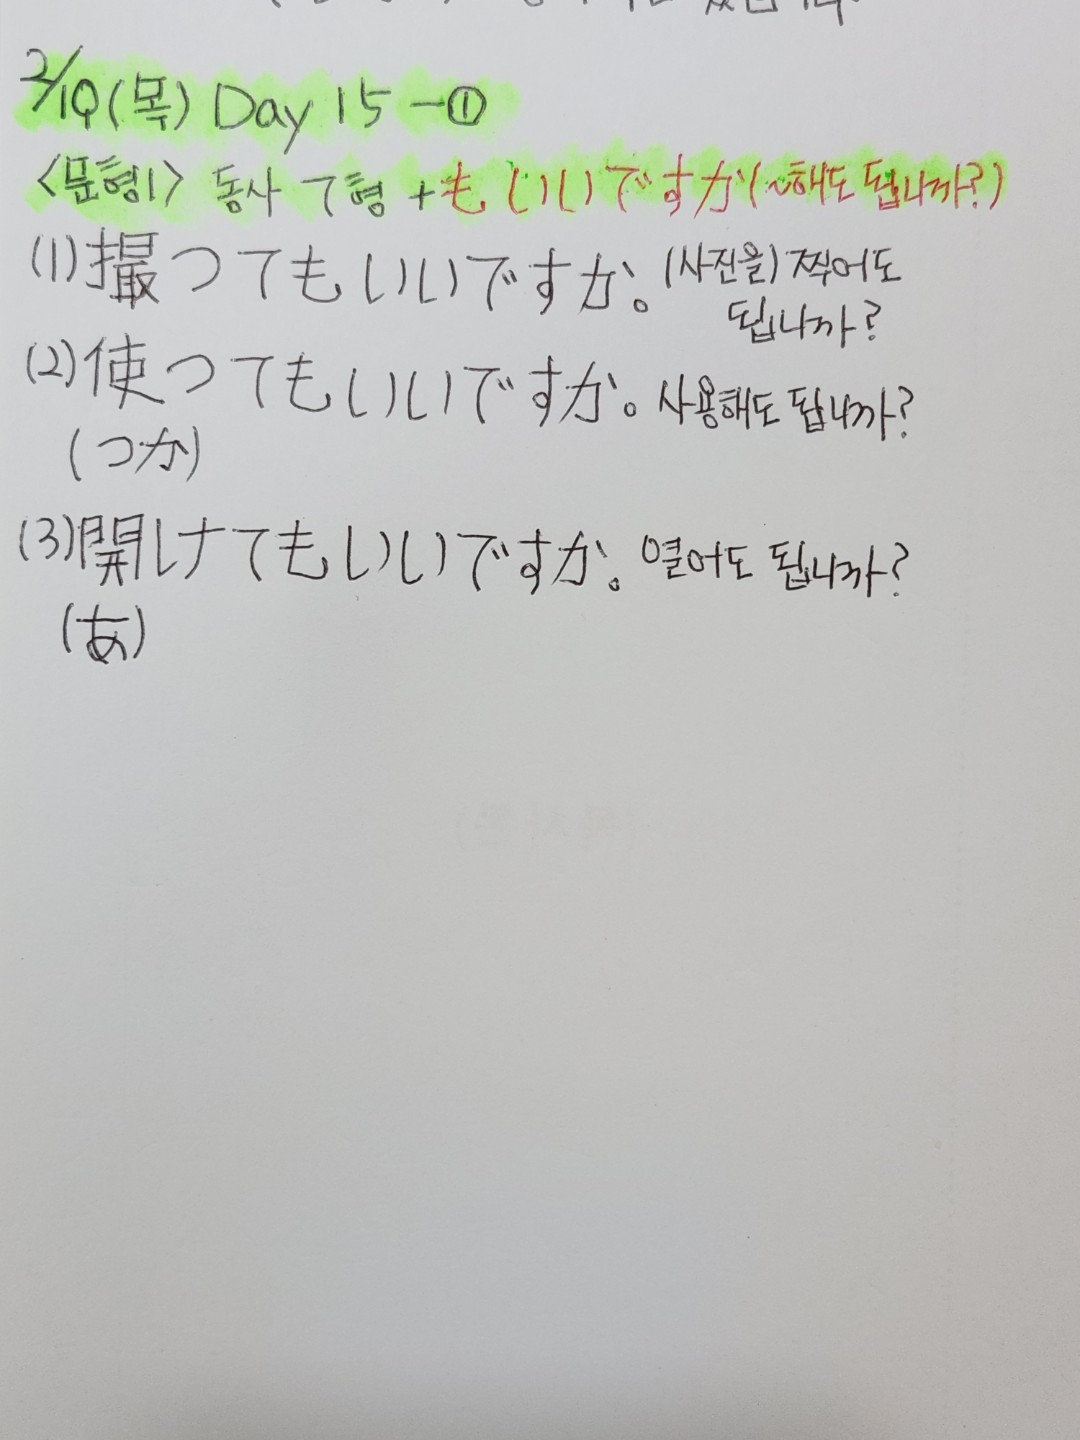 2/10(목) Day 15 -①
<문형1> 동사 て형 +もいいですか(~해도 됩니까?)
(1)撮ってもいいですか。(사진을) 찍어도
됩니까?
(2)使ってもいいですか。사용해도 됩니까?
(つか)
(3)開けてもいいですか。열어도 됩니까?
(あ)